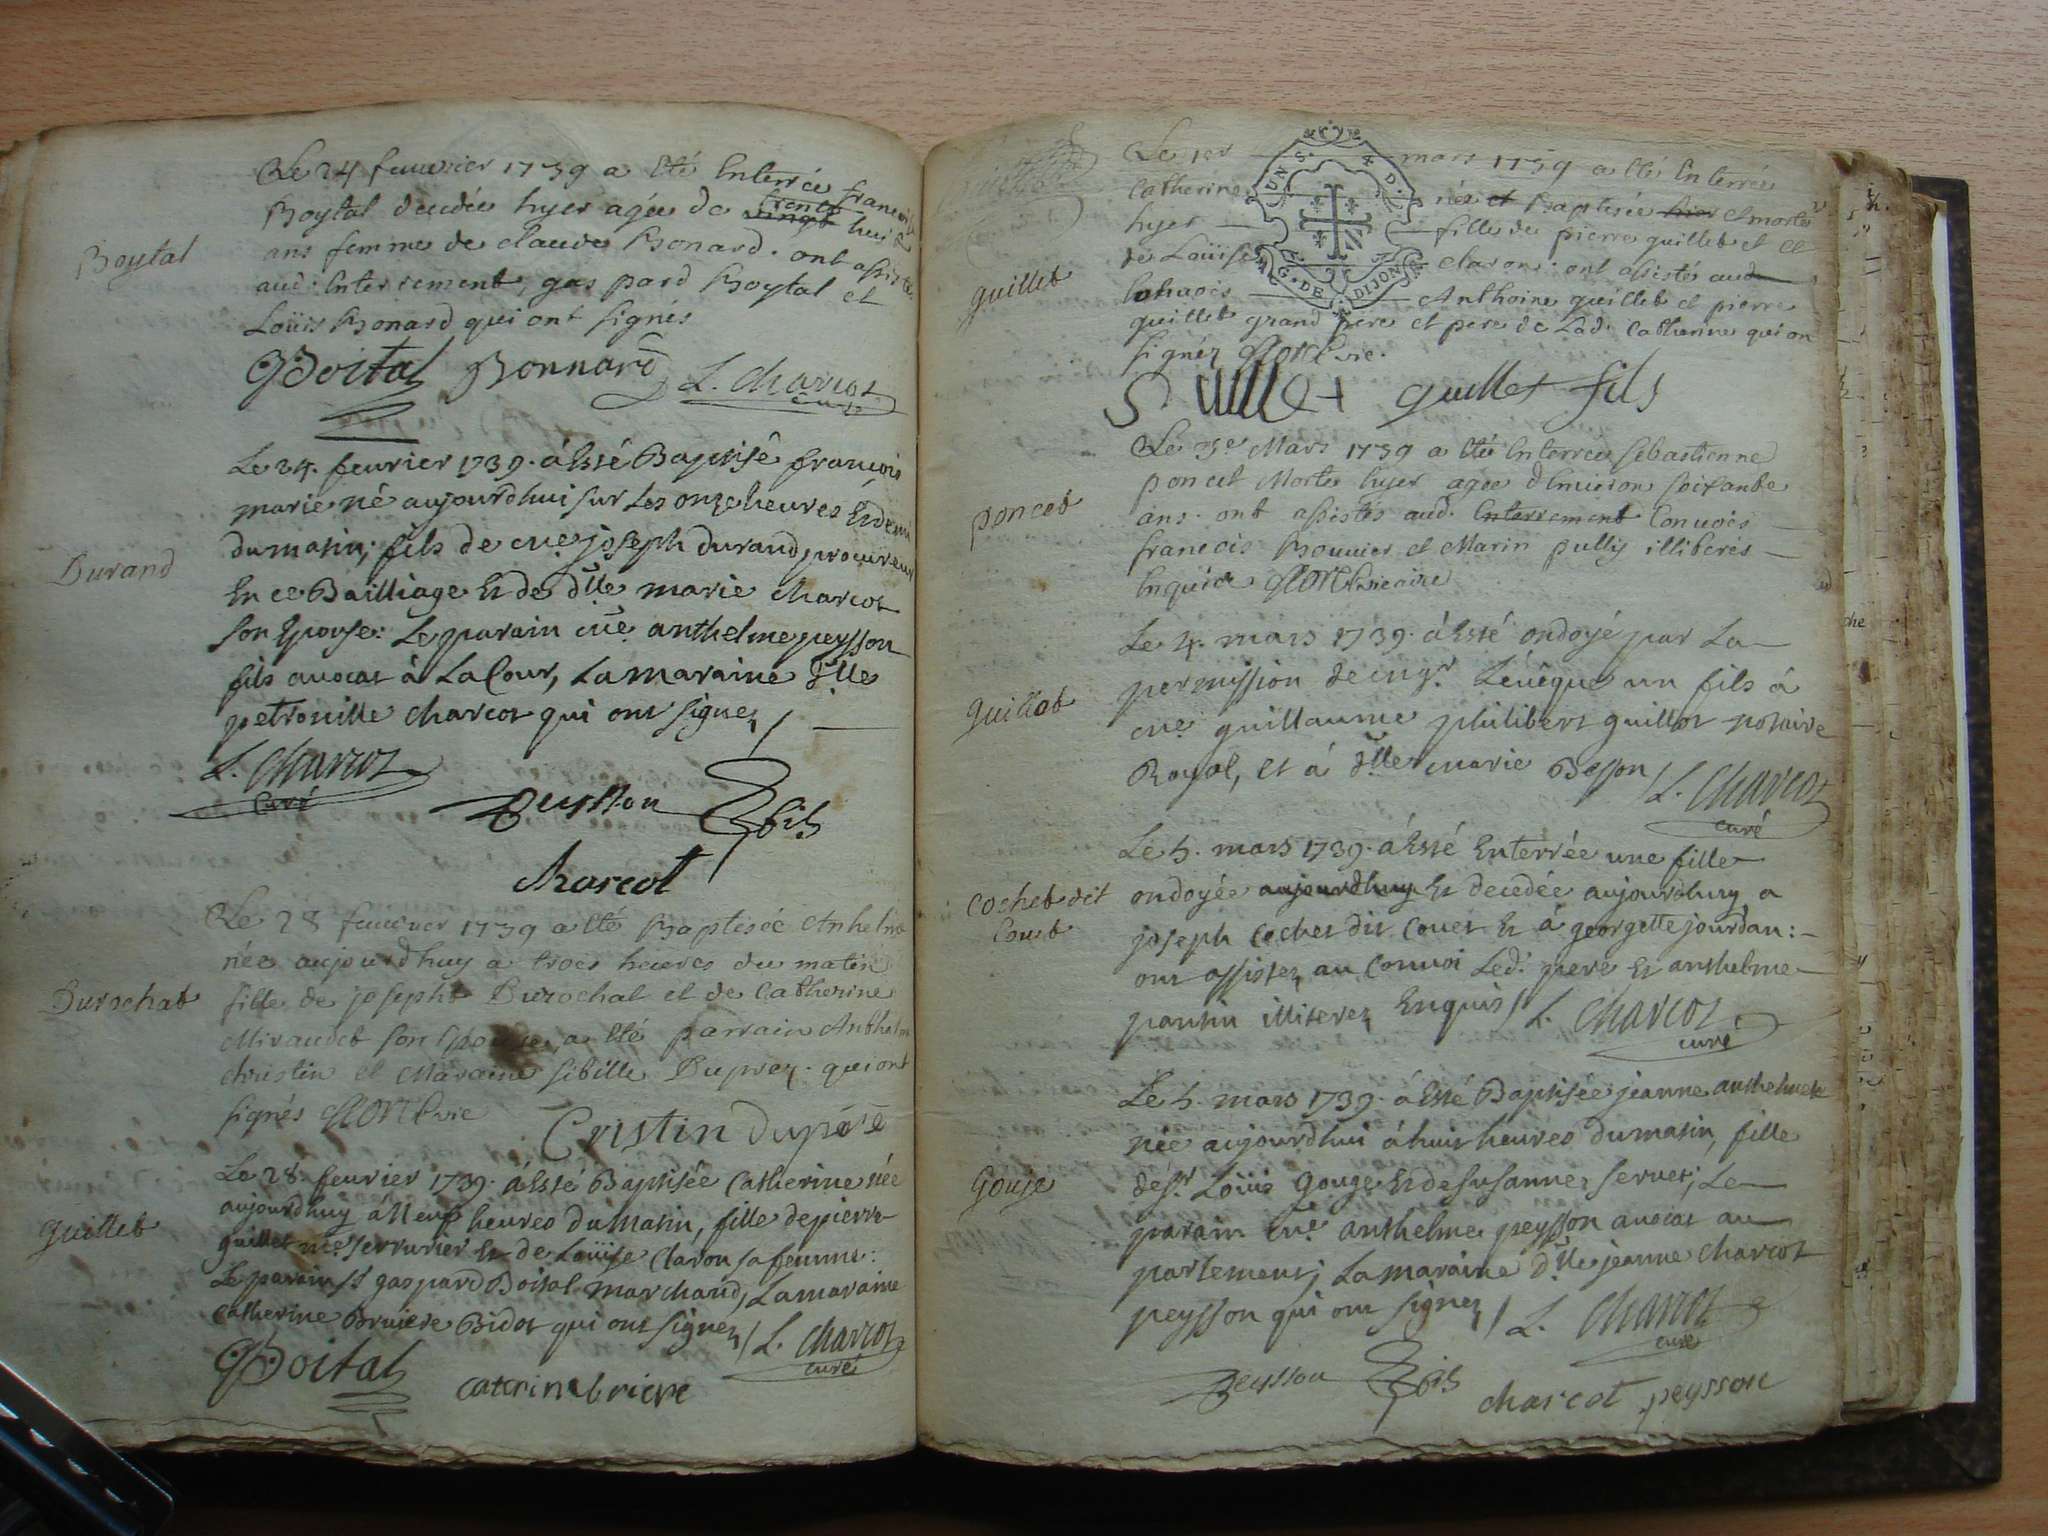 Boytal
Le 24 feuurier 1739 a été Enterrée francoise
Boytal decedée hyer agée de vingt trente huit
ans femme de claude Bonard. ont assistés
aud. Enterrement, gaspard Boytal et
Loüis Bonard qui ont signés
GBoital Bonnard L. Charcot
curé
Durand
Le 24. feurier 1739. á Esté Baptisé françois
marie né aujourdhui sur Les onze heures Et demi
du matin; fils de me. joseph durand, procureur
En ce Bailliage Et de dlle marie charcot
son Epouse: Le parain me. anthelme peysson
fils auocat à La Cour, La maraine dlle
petronille charcot qui ont signez /
L. Charcot
curé
Peysson fils
charcot
Durochat
Le 28 feuurier 1739 a été Baptisée Anthelme
née aujourdhuy a trois heures du matin
fille de josepht Durochat et de Catherine
Miraudet son Epouse, a été parrain Anthelme
christin et Maraine sibille Duprez. qui ont
signés vic
Cristin dupéré
guillet
Le 28. feurier 1739. á Esté Baptisée Catherine née
aujourdhuy á Neuf heures du matin, fille de pierre
guillet me. serrurier Et de Loüise Claron sa femme:
Le parain sr gaspard Boital marchand, La maraine
Catherine Bruiere Bidot qui ont signez / L. Charcot
curé
GBoital caterine briere
guillet
Le 1er mars 1739 a été Enterrée
Catherine née et Baptisée hier et morte
hyer fille de pierre guillet et
de Loüise claron: ont assistés aud
Conuois Anthoine guillet et pierre
guillet grand pere et pere de Lad. Catherine qui on
signéz vic.
UN S. 4 D.
G. DE DIJON
guillet guillet fils
poncet
Le 3e Mars 1739 a été Enterrée sebastienne
poncet Morte hyer agée d'Enuiron soixante
ans. ont assistés aud. Enterrement Conuois
francois Bouuier et Marin pully illiterés
Enquis vicaire
guillot
Le 4. mars 1739. á Esté ondoyé par La
permission de mgr. Léuéque un fils á
me. guillaume philibert guillot notaire
Royal, et á dlle marie Besson / L. Charcot
curé
Cochet dit
Couet
Le 5. mars 1739. á Esté Enterrée une fille
ondoyée aujourdhuy Et decedée aujourdhuy, a
joseph Cochet dit Couet Et á georgette jourdan:
ont assistez au Conuoi Led. pere Et anthelme
pantin illiterez Enquis / L. Charcot
curé
Gouge
Le 5. mars 1739. á Esté Baptisée jeanne anthelmete
née aujourdhui á huit heures du matin, fille
de sr. Loüis Gouge Et de susanne seruet; Le
parain me. anthelme peysson auocat au
parlement; La maraine dlle jeanne charcot
peysson qui ont signez / L. Charcot
curé
Peysson fils charcot peysson